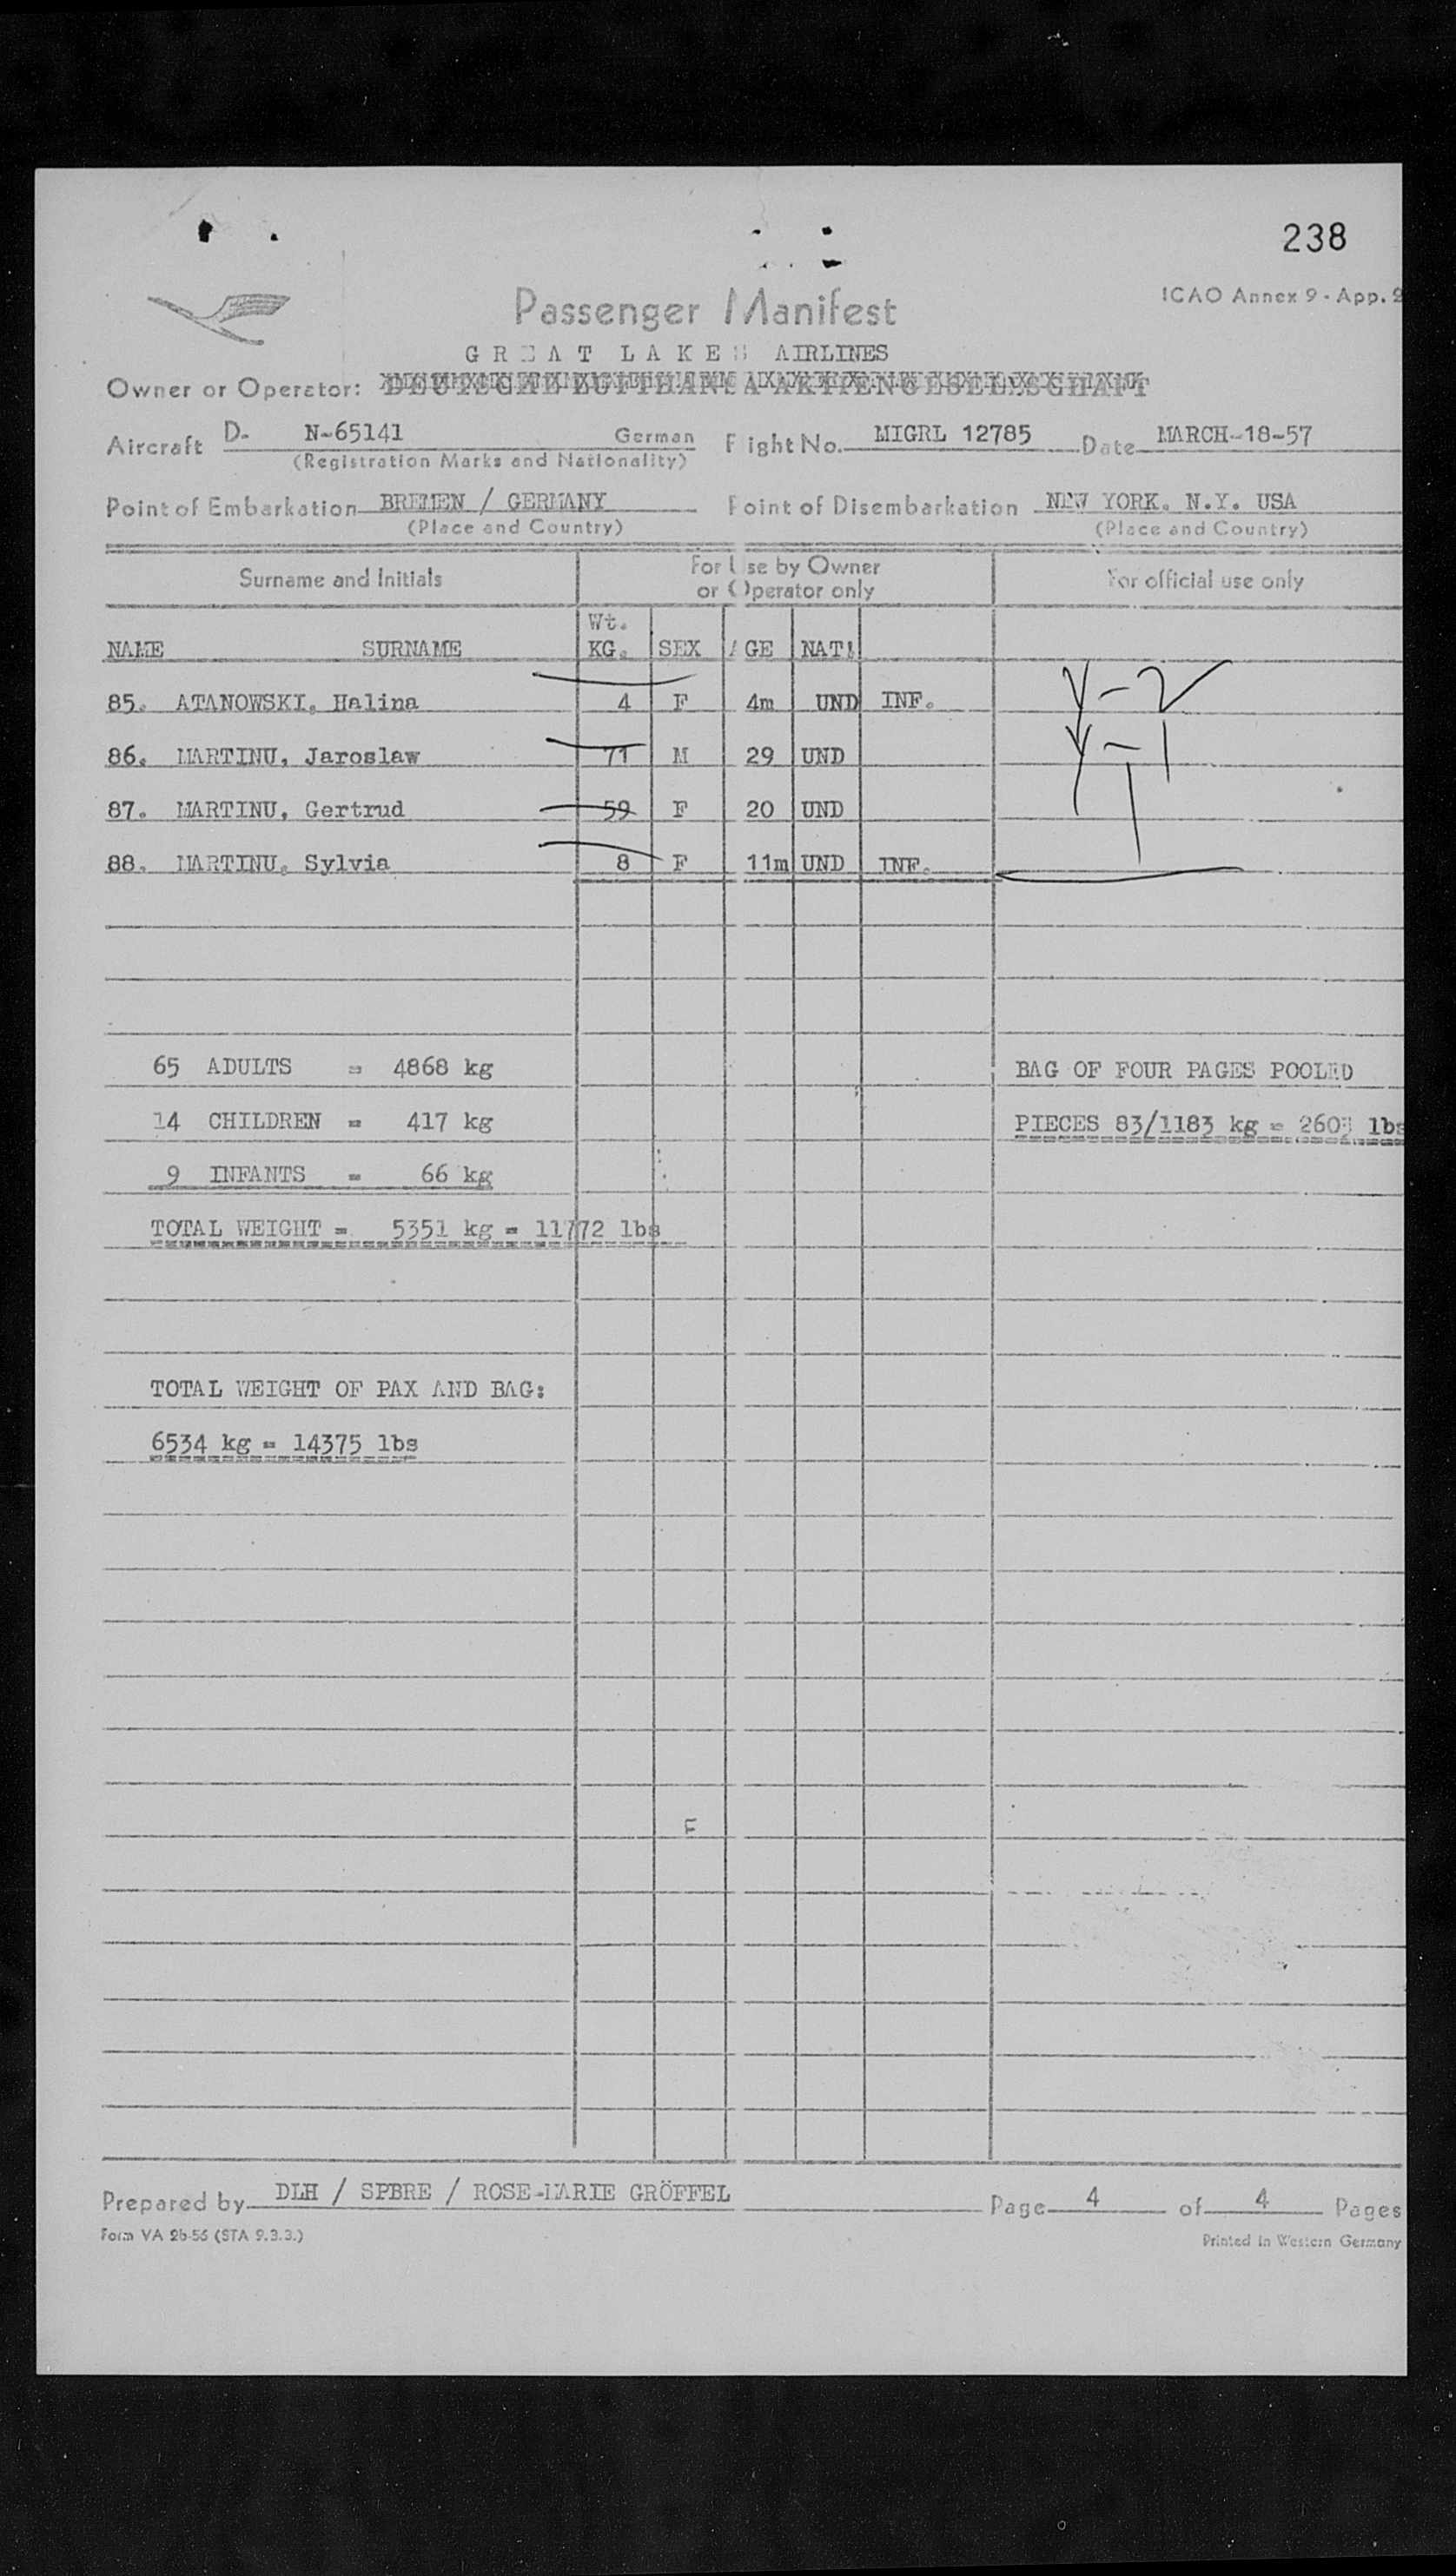 238
ICAO Annex 9 - App. 2
Passenger Manifest
GREAT LAKES AIRLINES
Owner or Operator: DEUTSCHE LUFTHANSA AKTIENGESELLSCHAFT
Aircraft D- N-65141 German Flight No. MIGRL 12785 Date MARCH-18-57
(Registration Marks and Nationality)
Point of Embarkation BREMEN / GERMANY Point of Disembarkation NEW YORK. N.Y. USA
(Place and Country) (Place and Country)
Surname and Initials For Use by Owner or Operator only For official use only
NAME SURNAME Wt. KG. SEX AGE NAT!
85. ATANOWSKI, Halina 4 F 4m UND INF. V-2
86. MARTINU, Jaroslaw 71 M 29 UND V-1
87. MARTINU, Gertrud 59 F 20 UND
88. MARTINU, Sylvia 8 F 11m UND INF.
65 ADULTS = 4868 kg BAG OF FOUR PAGES POOLED
14 CHILDREN = 417 kg PIECES 83/1183 kg = 2603 lbs
9 INFANTS = 66 kg
TOTAL WEIGHT = 5351 kg = 11772 lbs
TOTAL WEIGHT OF PAX AND BAG:
6534 kg = 14375 lbs
Prepared by DLH / SPBRE / ROSE-MARIE GRÖFFEL Page 4 of 4 Pages
Form VA 2b-56 (STA 9.3.3.) Printed in Western Germany